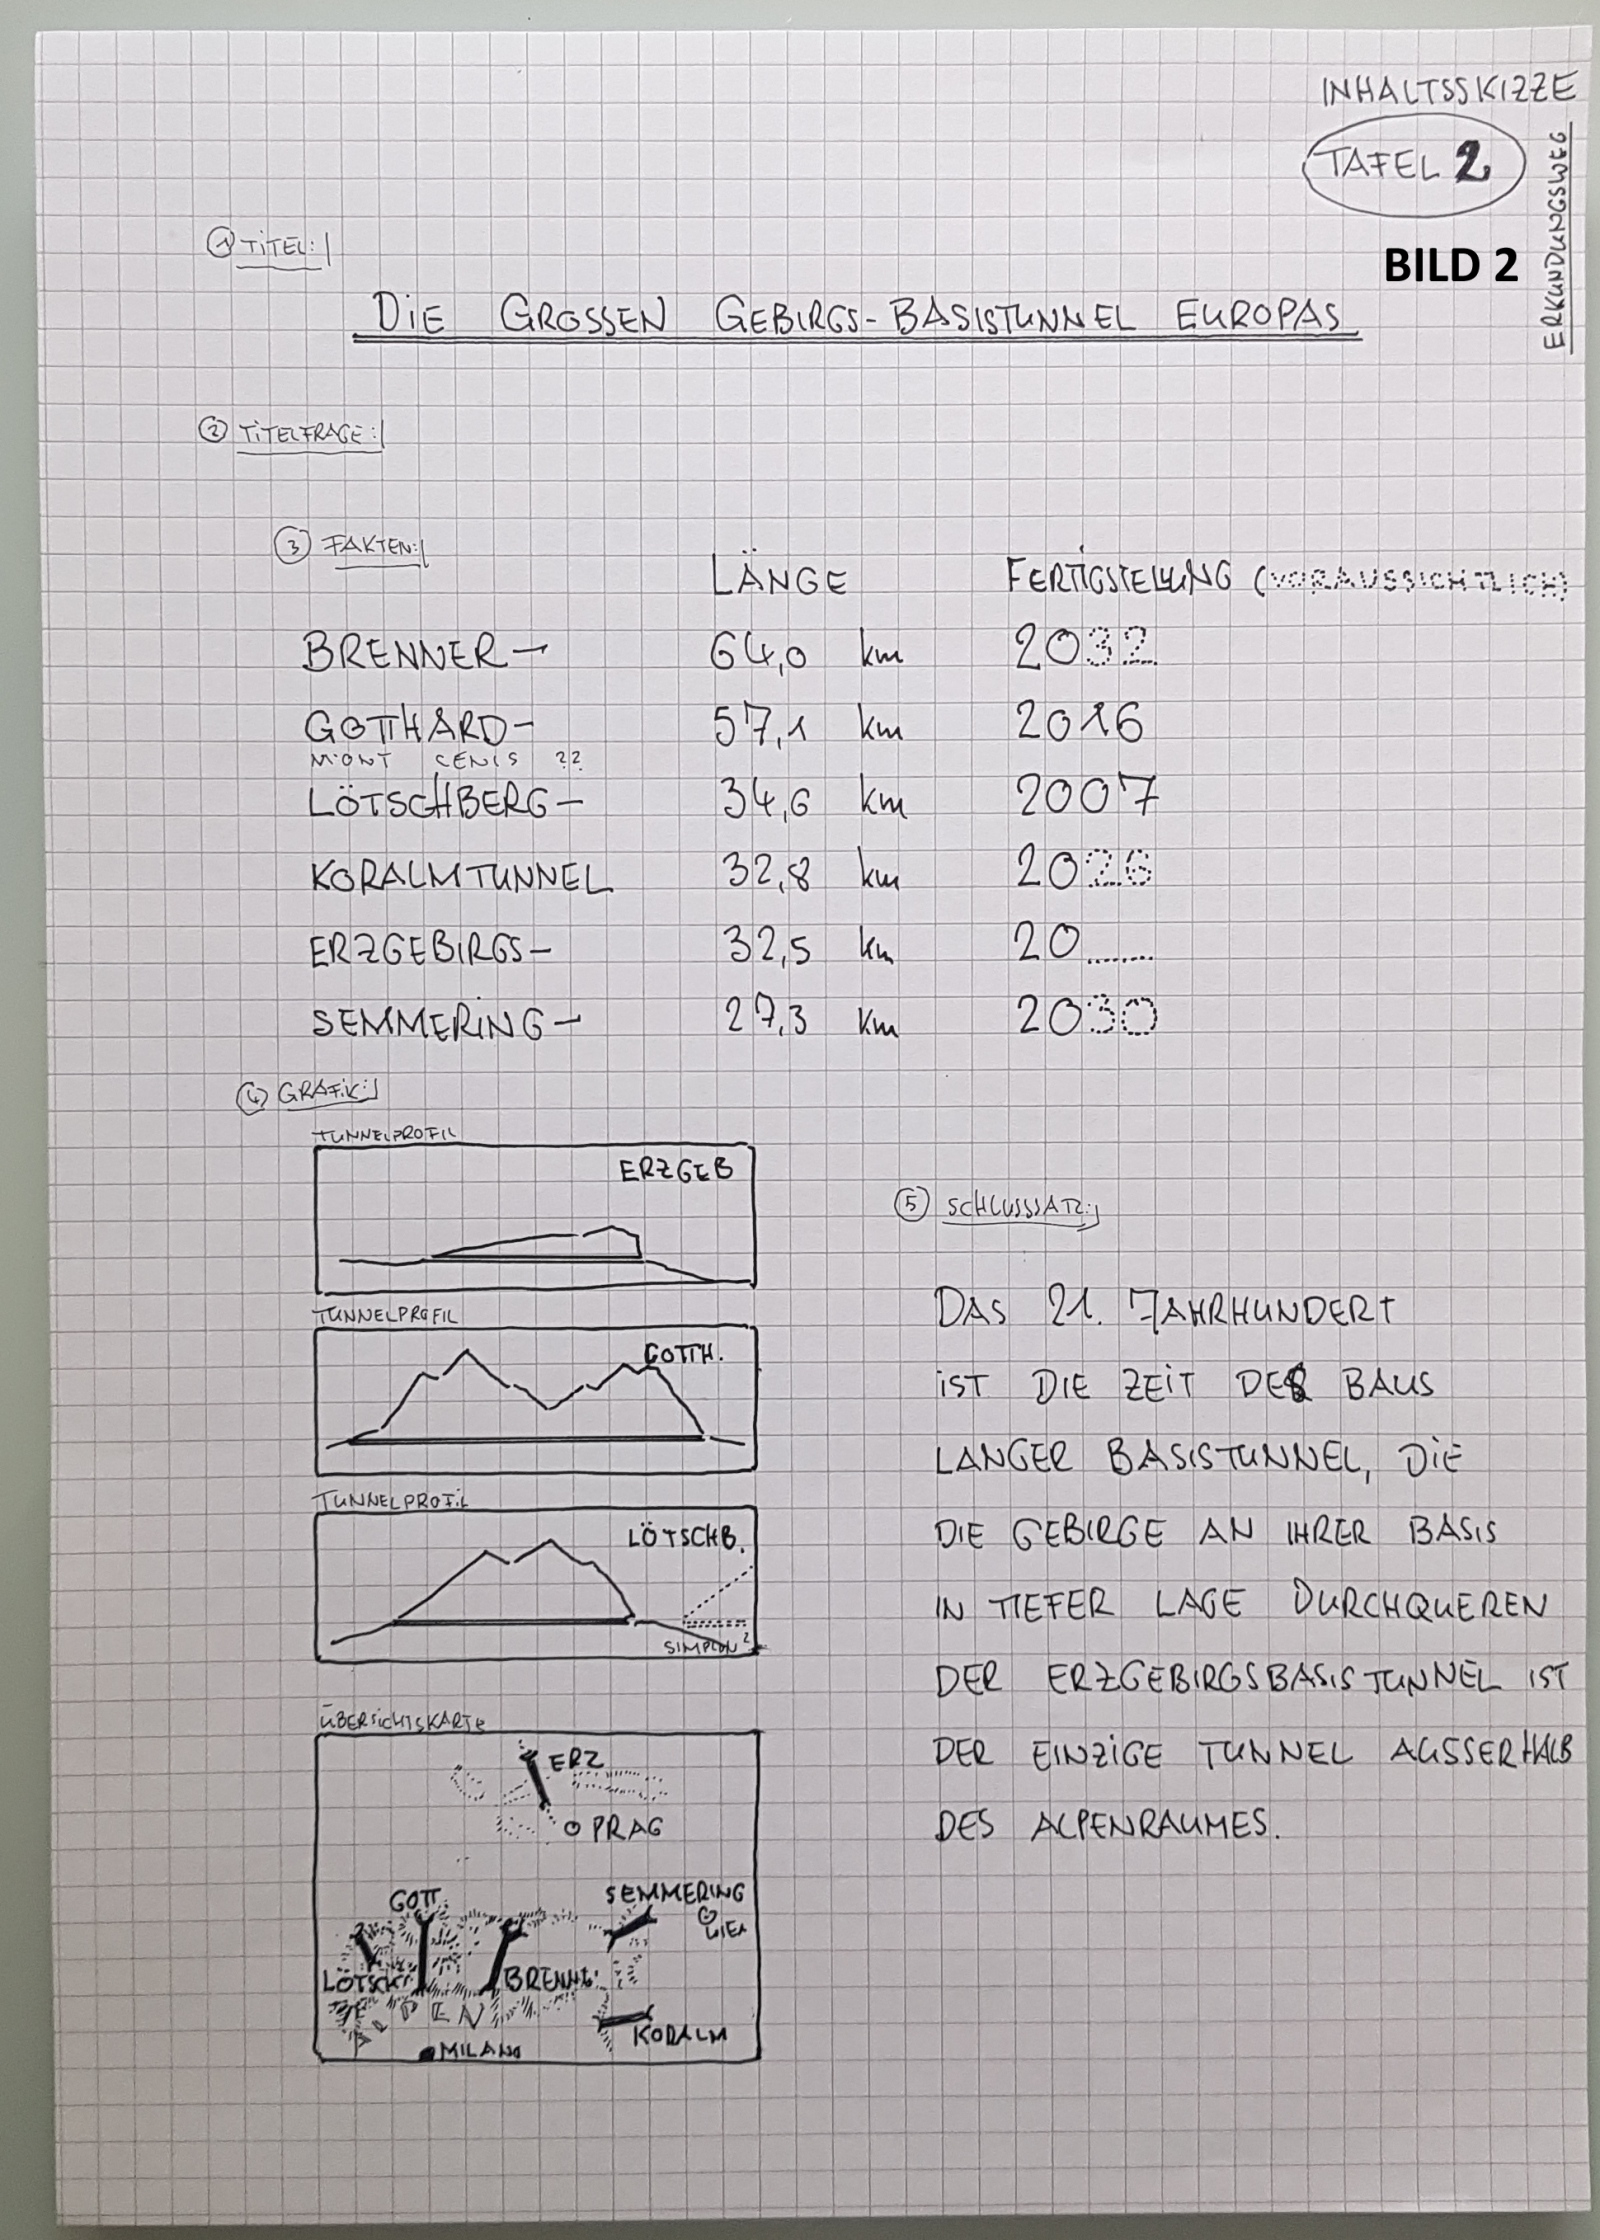 INHALTSSKIZZE
TAFEL 2
ERKUNDUNGSWEG
BILD 2
① TITEL:
DIE GROSSEN GEBIRGS-BASISTUNNEL EUROPAS
② TITELFRAGE:
③ FAKTEN:
LÄNGE FERTIGSTELLUNG (VORAUSSICHTLICH)
BRENNER- 64,0 km 2032
GOTTHARD- 57,1 km 2016
MONT CENIS ??
LÖTSCHBERG- 34,6 km 2007
KORALMTUNNEL 32,8 km 2026
ERZGEBIRGS- 32,5 km 20.......
SEMMERING- 27,3 km 2030
④ GRAFIK:
TUNNELPROFIL
ERZGEB
TUNNELPROFIL
GOTTH.
TUNNELPROFIL
LÖTSCHB.
SIMPLON?
ÜBERSICHTSKARTE
ERZ
PRAG
GOTT.
SEMMERING
WIEN
LÖTSCH.
BRENN.
ALPEN
KORALM
MILANO
⑤ SCHLUSSSATZ:
DAS 21. JAHRHUNDERT
IST DIE ZEIT DES BAUS
LANGER BASISTUNNEL, DIE
DIE GEBIRGE AN IHRER BASIS
IN TIEFER LAGE DURCHQUEREN
DER ERZGEBIRGSBASISTUNNEL IST
DER EINZIGE TUNNEL AUSSERHALB
DES ALPENRAUMES.